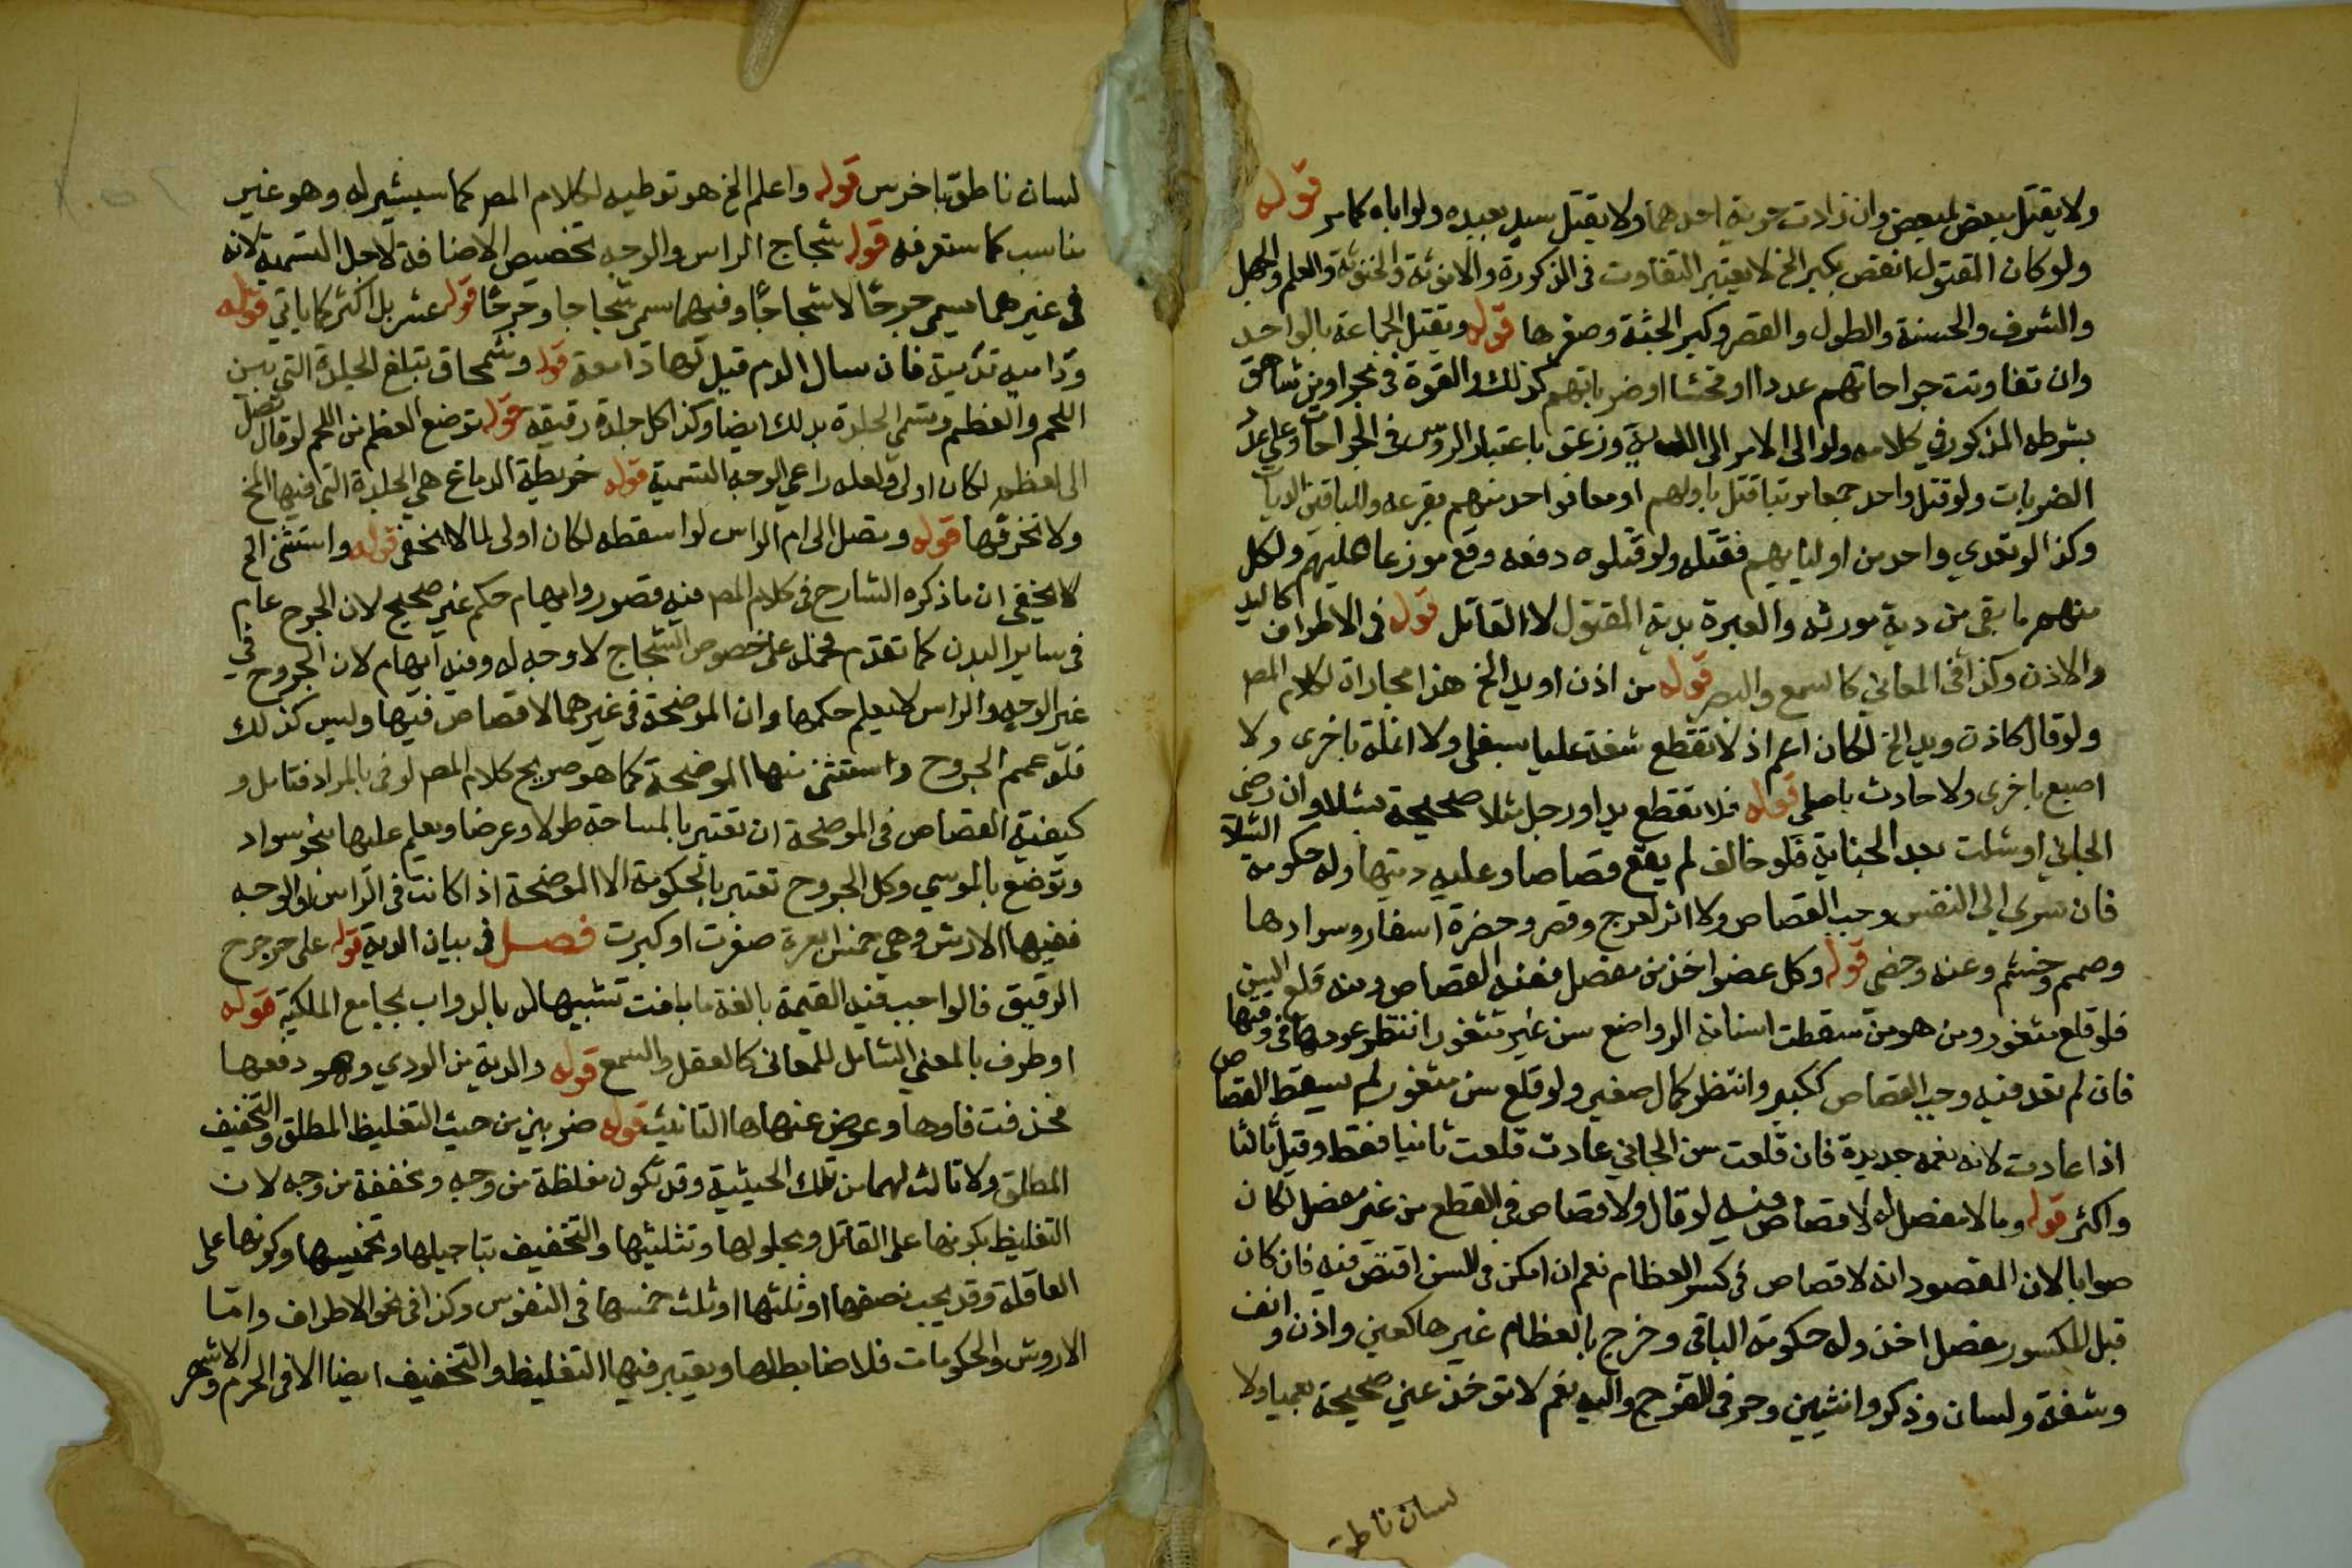 ولا يقتل بعض لبعض وان زادت حرية احدهما ولا يقتل سيد بعبده ولو اباه كما مر قوله
ولو كان المقتول انقص بكبر الخ لا يعتبر التفاوت في الذكورة والانوثة والخنوثة والعلم والجهل
والشرف والحسنة والطول والقصر وكبر الجثة وصغرها قوله وتقتل الجماعة بالواحد
وان تفاوتت جراحاتهم عددا او فحشا او ضرباتهم كذلك والقوة في نحر او من شاهق
بشرطه المذكور في كلامه ولو الى الامر الى الدية وزعت باعتبار الروس في الجراحات وعلى عدد
الضربات ولو قتل واحد جمعا مرتبا قتل باولهم او معا فواحد منهم بقرعة وللباقين الديات
وكذا لو تعدي واحد من اوليايهم فقتله ولو قتلوه دفعه وقع موزعا عليهم ولكل
منهم ما بقي من دية مورثه والعبرة بدية المقتول لا القاتل قوله في الاطراف كاليد
والاذن وكذا في المعاني كالسمع والبصر قوله من اذن او يد الخ هذا مجاراة لكلام المصر
ولو قال كاذن ويد الخ لكان اعم اذ لا تقطع شفة عليا بسفلى ولا انملة باخرى ولا
اصبع باخرى ولا حادث باصلي قوله فلا تقطع يد او رجل مثلا صحيحة بشلا وان رضي
الجاني او شلت بعد الجناية فلو خالف لم يقع قصاصا وعليه ديتها وله حكومة الشلا
فان سري الى النفس وجب القصاص ولا اثر لعرج وقصر وخضرة اسفار وسوادها
وصمم وخشم وعنه وخصي قوله وكل عضو اخذ من مفصل ففيه القصاص ومنه قلع السن
فلو قلع مثغور ومن هو من سقطت اسنانه الرواضع سن غير مثغور انتظر عودها في وقتها
فان لم تعد فيه وجب القصاص ككبير وانتظر كمال صغير ولو قلع سن مثغور لم يسقط القصاص
اذا عادت لانه نعمة جديدة فان قلعت سن الجاني عادت قلعت ثانيا فقط وقيل ثالثا
واكثر قوله وما لا مفصل له لا قصاص فيه لو قال ولا قصاص في القطع من غير مفصل لكان
صوابا لان المقصود انه لا قصاص في كسر العظام نعم ان امكن في السن اقتص فيه فان كان
قبل المكسور مفصل اخذ وله حكومة الباقي وخرج بالعظام غيرها كعين واذن وانف
وشفة ولسان وذكر وانثيين وحرفي الفرج والييه نعم لا تؤخذ عين صحيحة بعميا ولا
لسان ناطق
لسان ناطق باخرس قوله واعلم الخ هو توطيه لكلام المصر كما سيشير له وهو غير
مناسب كما ستعرفه قوله شجاج الراس والوجه تخصيص الاضافة لاجل التسمية لانه
في غيرهما يسمي جرحا لا شجاجا وفيهما سمي شجاجا وجرحا قوله عشر بل اكثر كما ياتي قوله
ودامية تدمية فان سال الدم قيل لها دامعة قوله وسمحاق تبلغ الجلدة التي بين
اللحم والعظم وتسمي الجلدة بذلك ايضا وكذا كل جلدة رقيقة قوله توضع العظم من اللحم لو قال تصل
الى العظم لكان اولى ولعله راعي الوجه التسمية قوله خريطة الدماغ هي الجلدة التي فيها المخ
ولا تخرقها قوله وتصل الى ام الراس لو اسقطه لكان اولى لما لا يخفى قوله واستثني الخ
لا يخفي ان ما ذكره الشارح في كلام المصر فيه قصور وايهام حكم غير صحيح لان الجرح عام
في ساير البدن كما تقدم فحمله على خصوص الشجاج لا وجه له وفيه ايهام لان الجروح في
غير الوجه والراس لا يعلم حكمها وان الموضحة في غيرهما لا قصاص فيها وليس كذلك
فلو عمم الجروح واستثنى منها الموضحة كما هو صريح كلام المصر لوفى بالمراد فتامل و
كيفية القصاص في الموضحة ان تعتبر بالمساحة طولا وعرضا ويعلم عليها بنحو سواد
وتوضع بالموسي وكل الجروح تعتبر بالحكومة الا الموضحة اذا كانت في الراس والوجه
ففيها الارش وهي خمس ابعرة صغرت او كبرت فصل في بيان الدية قوله على حر جرح
الرقيق فالواجب فيه القيمة بالغة ما بلغت تشبيها له بالدواب بجامع الملكية قوله
او طرف بالمعني الشامل للمعاني كالعقل والسمع قوله والدية من الودي وهو دفعها
فحذفت فاوها وعوض عنها ها التانيث قوله ضربين من حيث التغليظ المطلق والتخفيف
المطلق ولا ثالث لهما من تلك الحيثية وقد تكون مغلظة من وجه ومخففة من وجه لان
التغليظ بكونها على القاتل وبحلولها وتثليثها والتخفيف بتاجيلها وتخميسها وكونها على
العاقلة وقد يجب نصفها او ثلثها او ثلث خمسها في النفوس وكذا في نحو الاطراف واما
الاروش والحكومات فلا ضابط لها ويعتبر فيها التغليظ والتخفيف ايضا الا في الحرم والاشهر